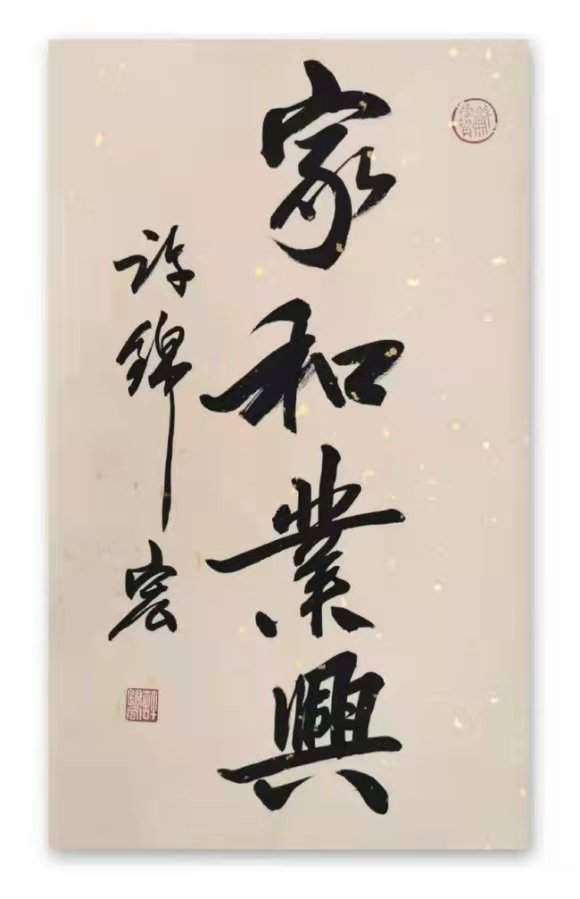 家和業興
許錦宏